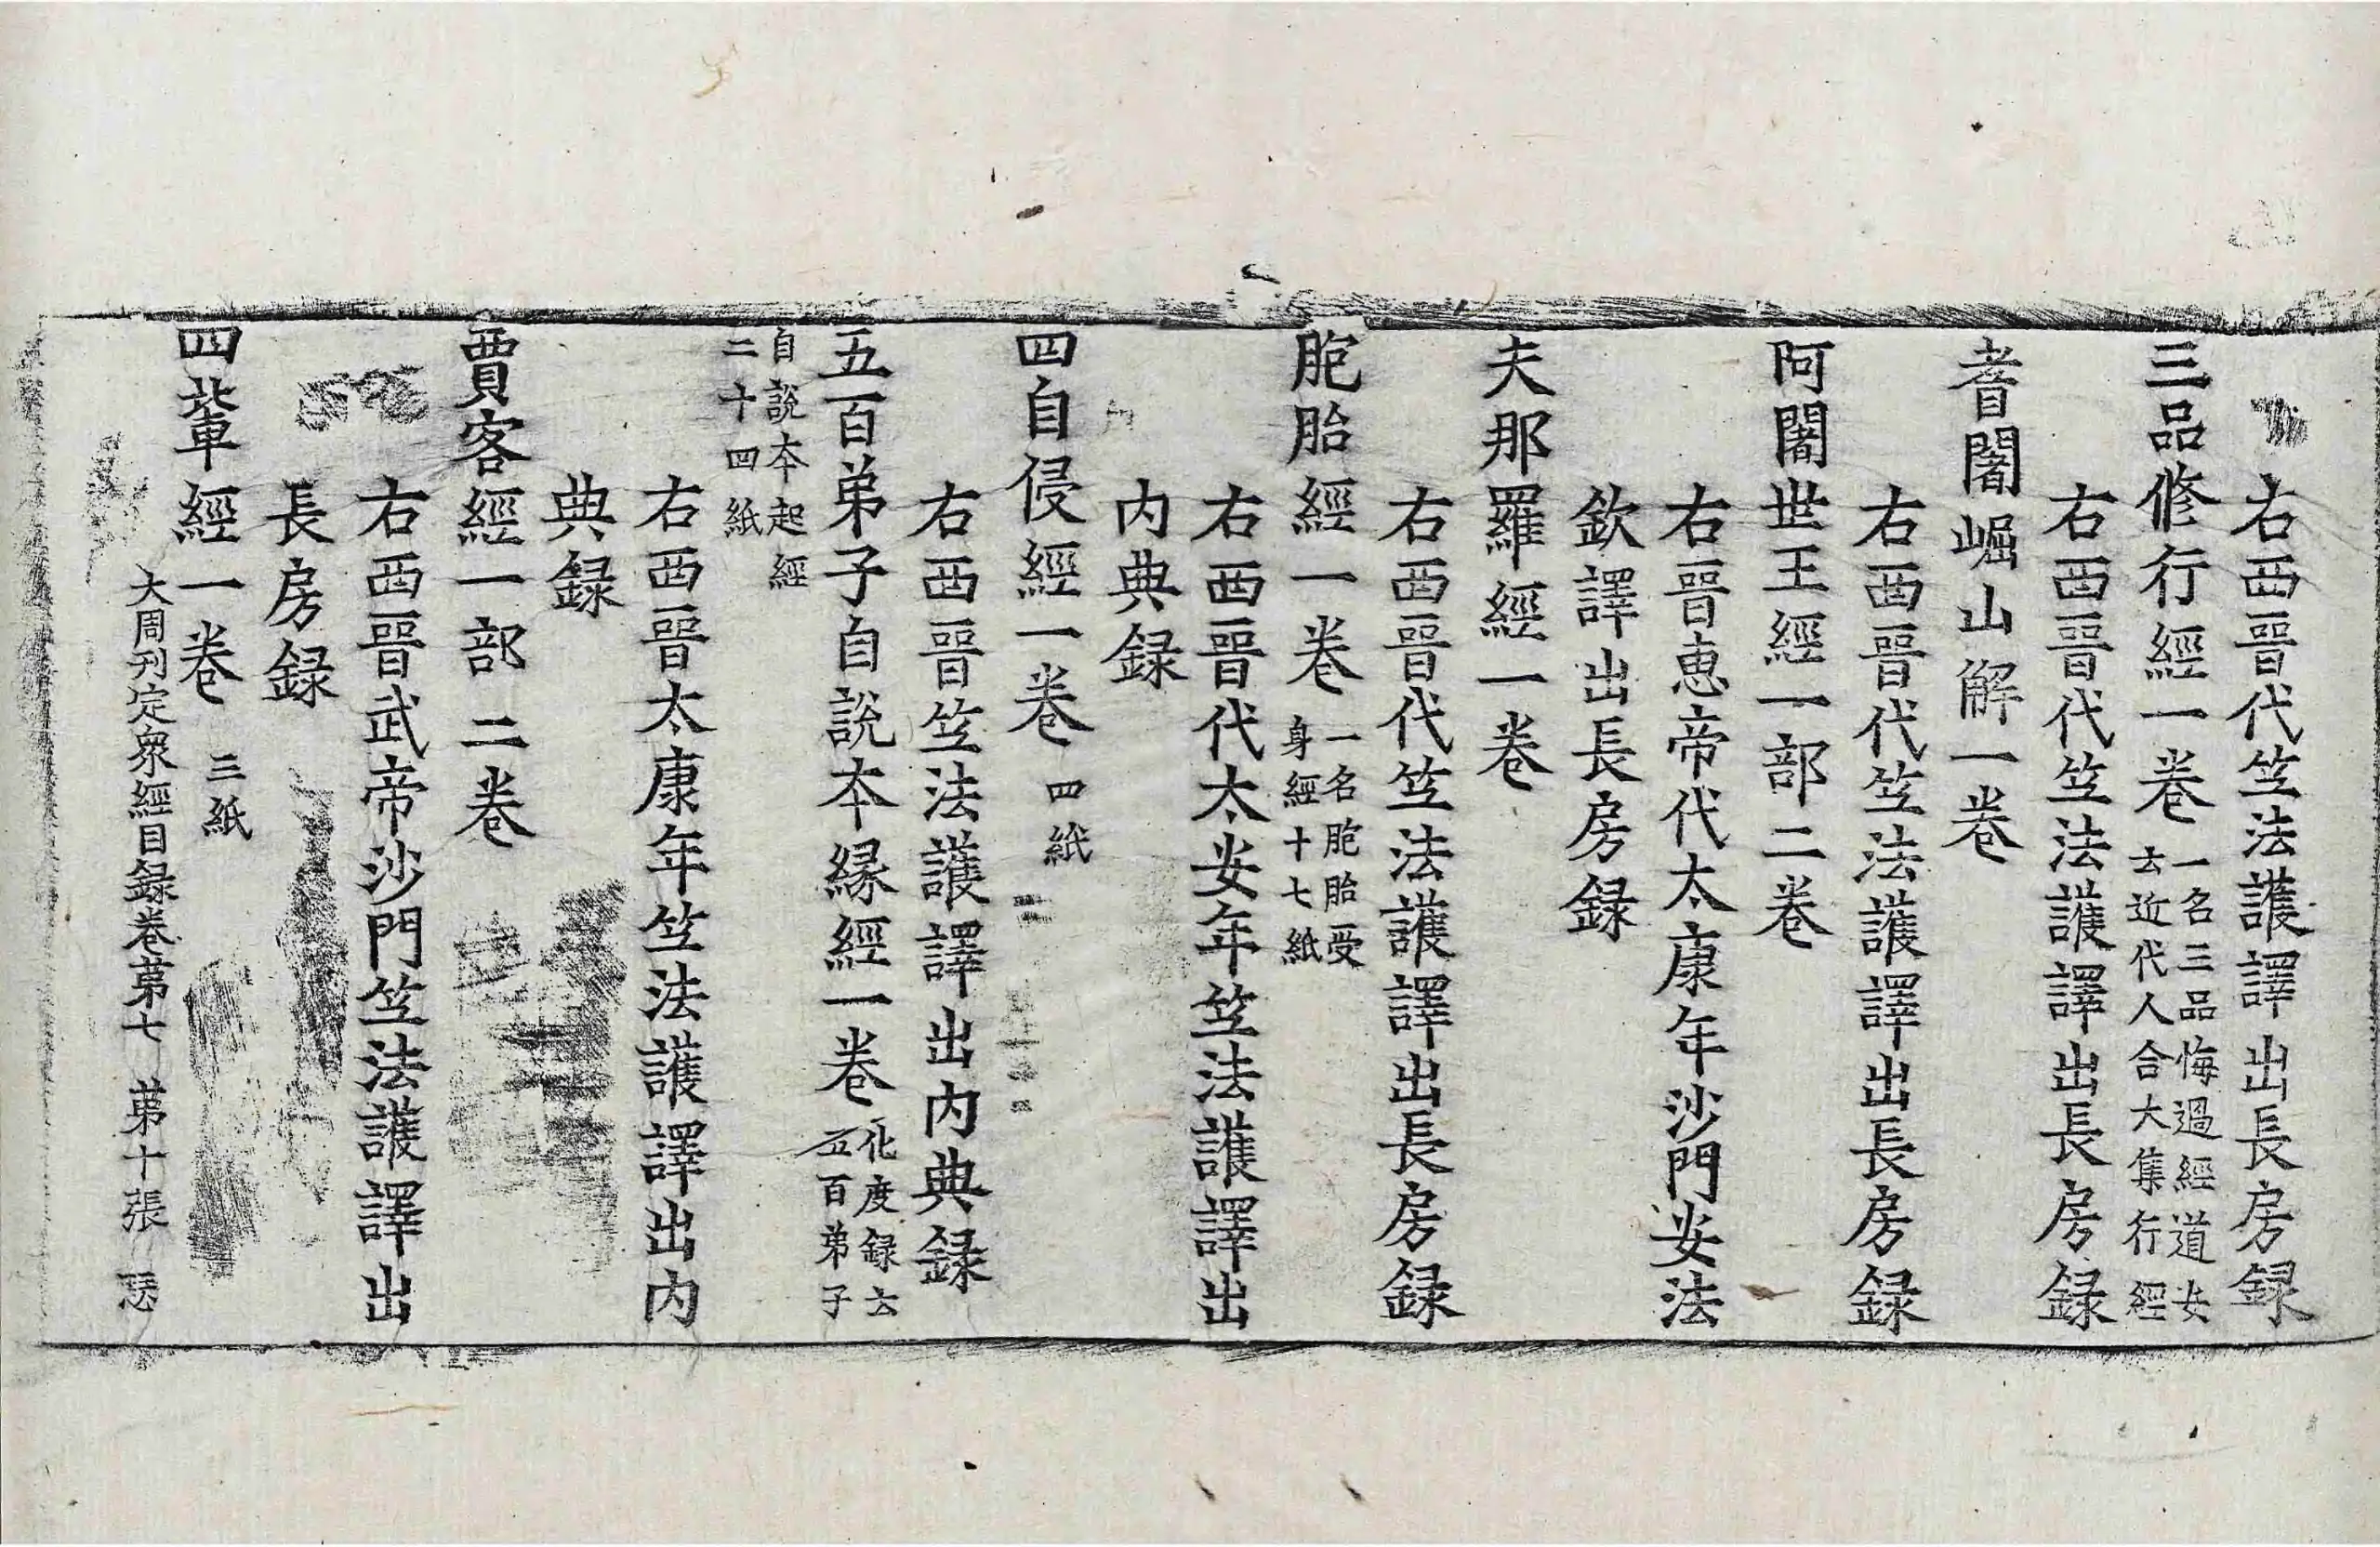 右西晉代竺法護譯出長房録
三品修行經一卷 一名三品悔過經道安
云近代人合大集行經
右西晉代竺法護譯出長房録
耆闍崛山解一卷
右西晉代竺法護譯出長房録
阿闍世王經一部二卷
右晉惠帝代太康年沙門安法
欽譯出長房録
夫那羅經一卷
右西晉代竺法護譯出長房録
胞胎經一卷 一名胞胎受
身經十七紙
右西晉代太安年竺法護譯出
内典録
四自侵經一卷 四紙
右西晉竺法護譯出内典録
五百弟子自說本縁經一卷 化度録云
五百弟子
自說本起經
二十四紙
右西晉太康年竺法護譯出内
典録
賈客經一部二卷
右西晉武帝沙門竺法護譯出
長房録
四輩經一卷 三紙
大周刊定衆經目録卷第七 第十張